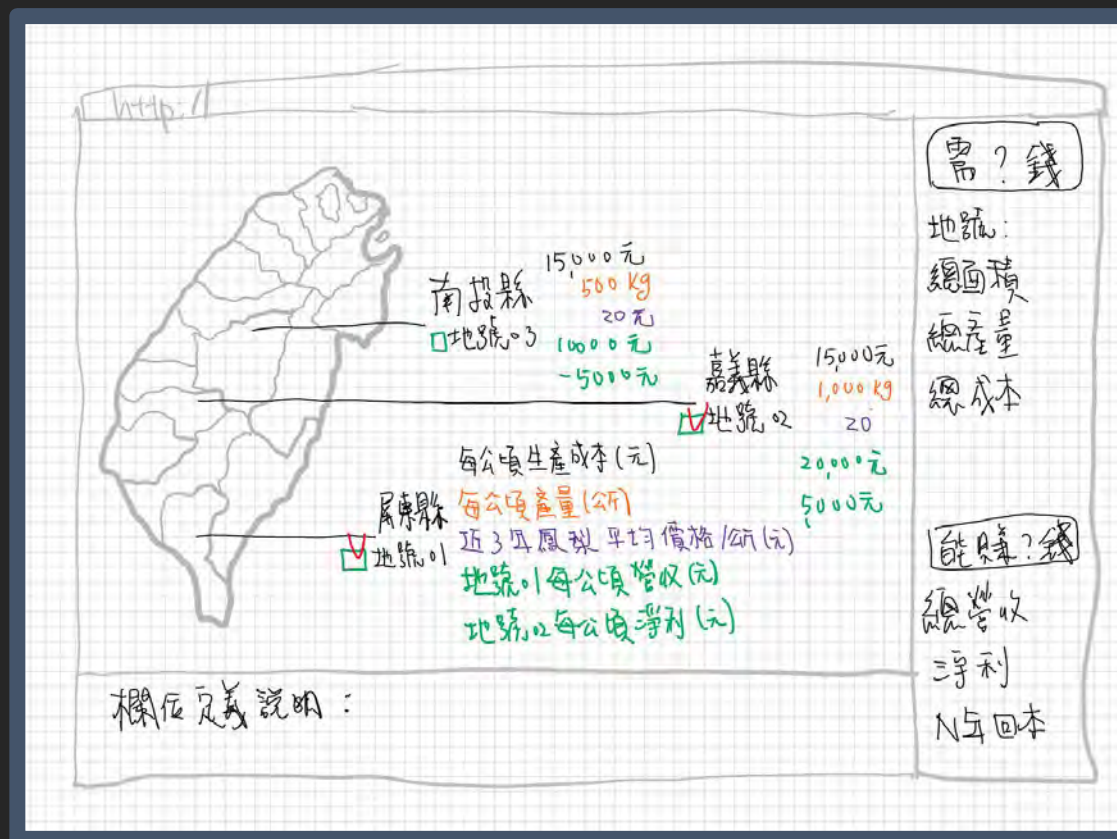 http:/
南投縣
地號03
15,000元
500 kg
20元
10000元
-5000元
嘉義縣
地號02
15,000元
1,000 kg
20
20,000元
5000元
屏東縣
地號01
每公頃生產成本(元)
每公頃產量(公斤)
近3年鳳梨平均價格/公斤(元)
地號01每公頃營收(元)
地號02每公頃淨利(元)
需?錢
地號:
總面積
總產量
總成本
能賺?錢
總營收
淨利
N年回本
欄位定義說明: